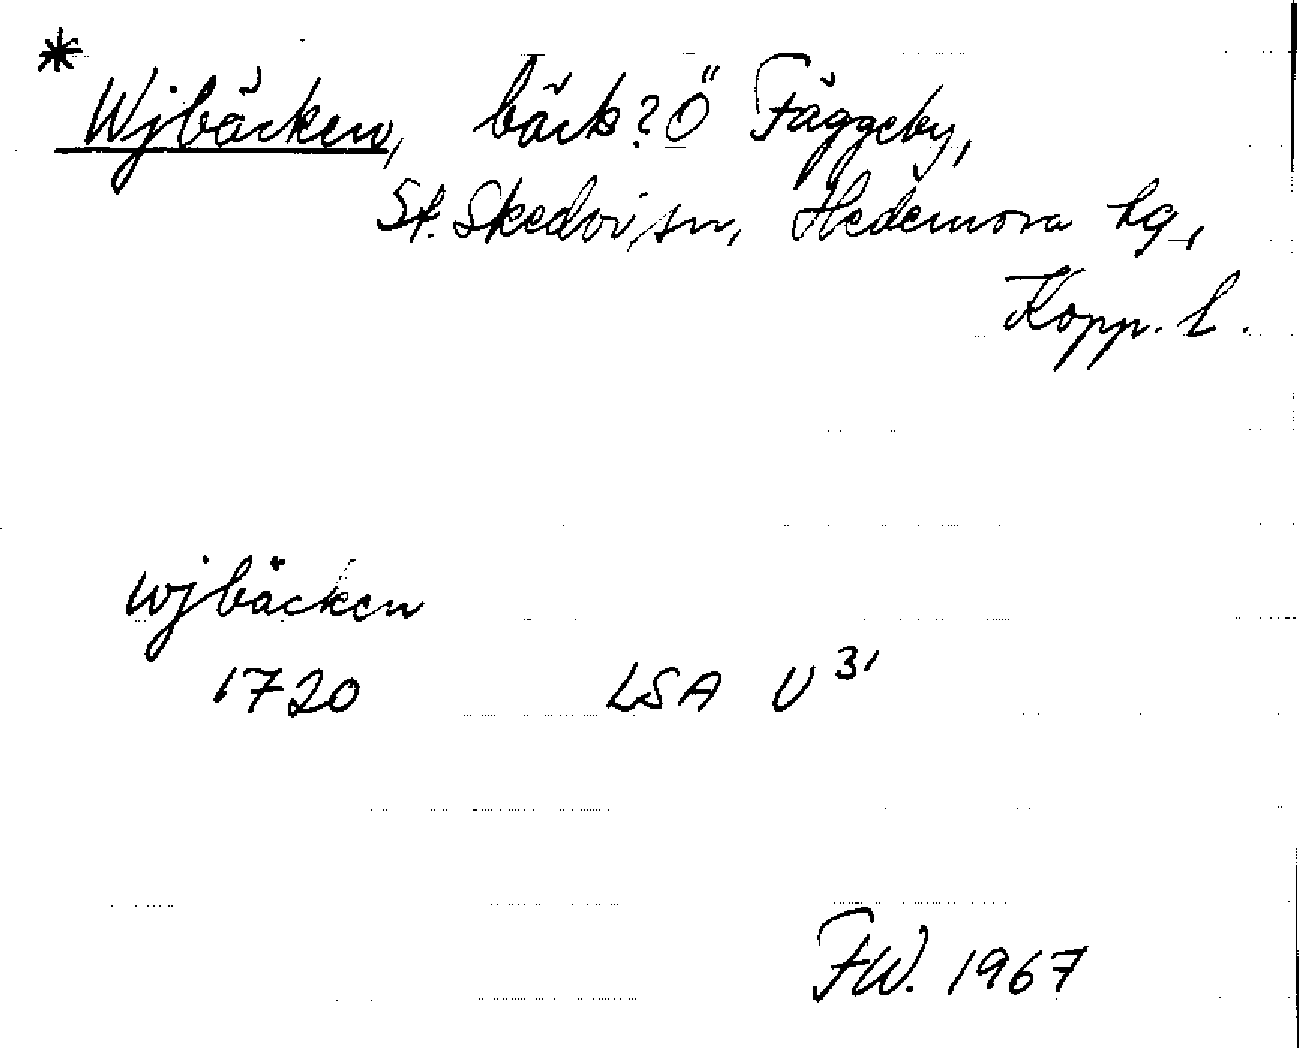 *
Wjbäcken, bäck? Ö Fäggeby,
St. Skedvi sn, Hedemora tg,
Kopp. l.
wjbäcken
1720 LSA U 31
FW. 1967